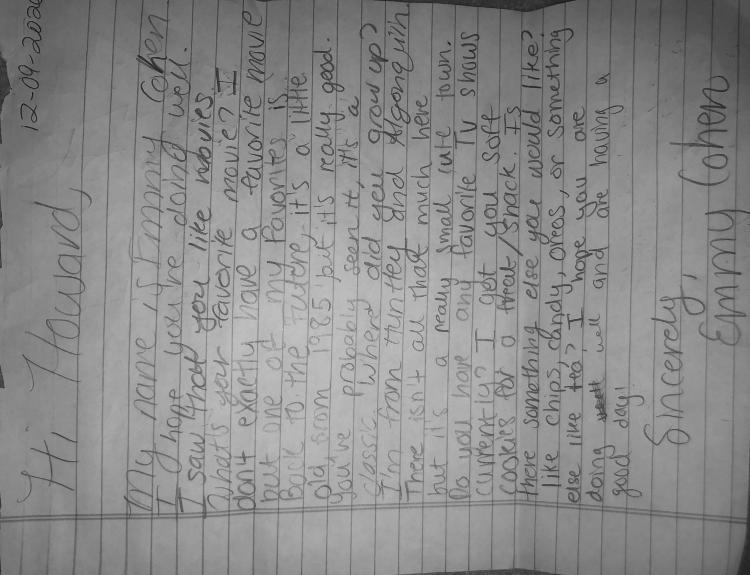 12-09-2020
Hi Howard,
My name is Emmy Cohen.
I hope you're doing well.
I saw that you like movies.
What's your favorite movie? I
don't exactly have a favorite movie
but one of my favorites is
Back to the Future, it's a little
old from 1985 but it's really good.
You've probably seen it, it's a
classic. Where did you grow up?
I'm from Huntley and Algonquin.
There isn't all that much here
but it's a really small cute town.
Do you have any favorite TV shows
currently? I get you soft
cookies for a treat/snack. Is
there something else you would like?
like chips, candy, oreos, or something
else like tea? I hope you are
doing well and are having a
good day!
Sincerely,
Emmy Cohen